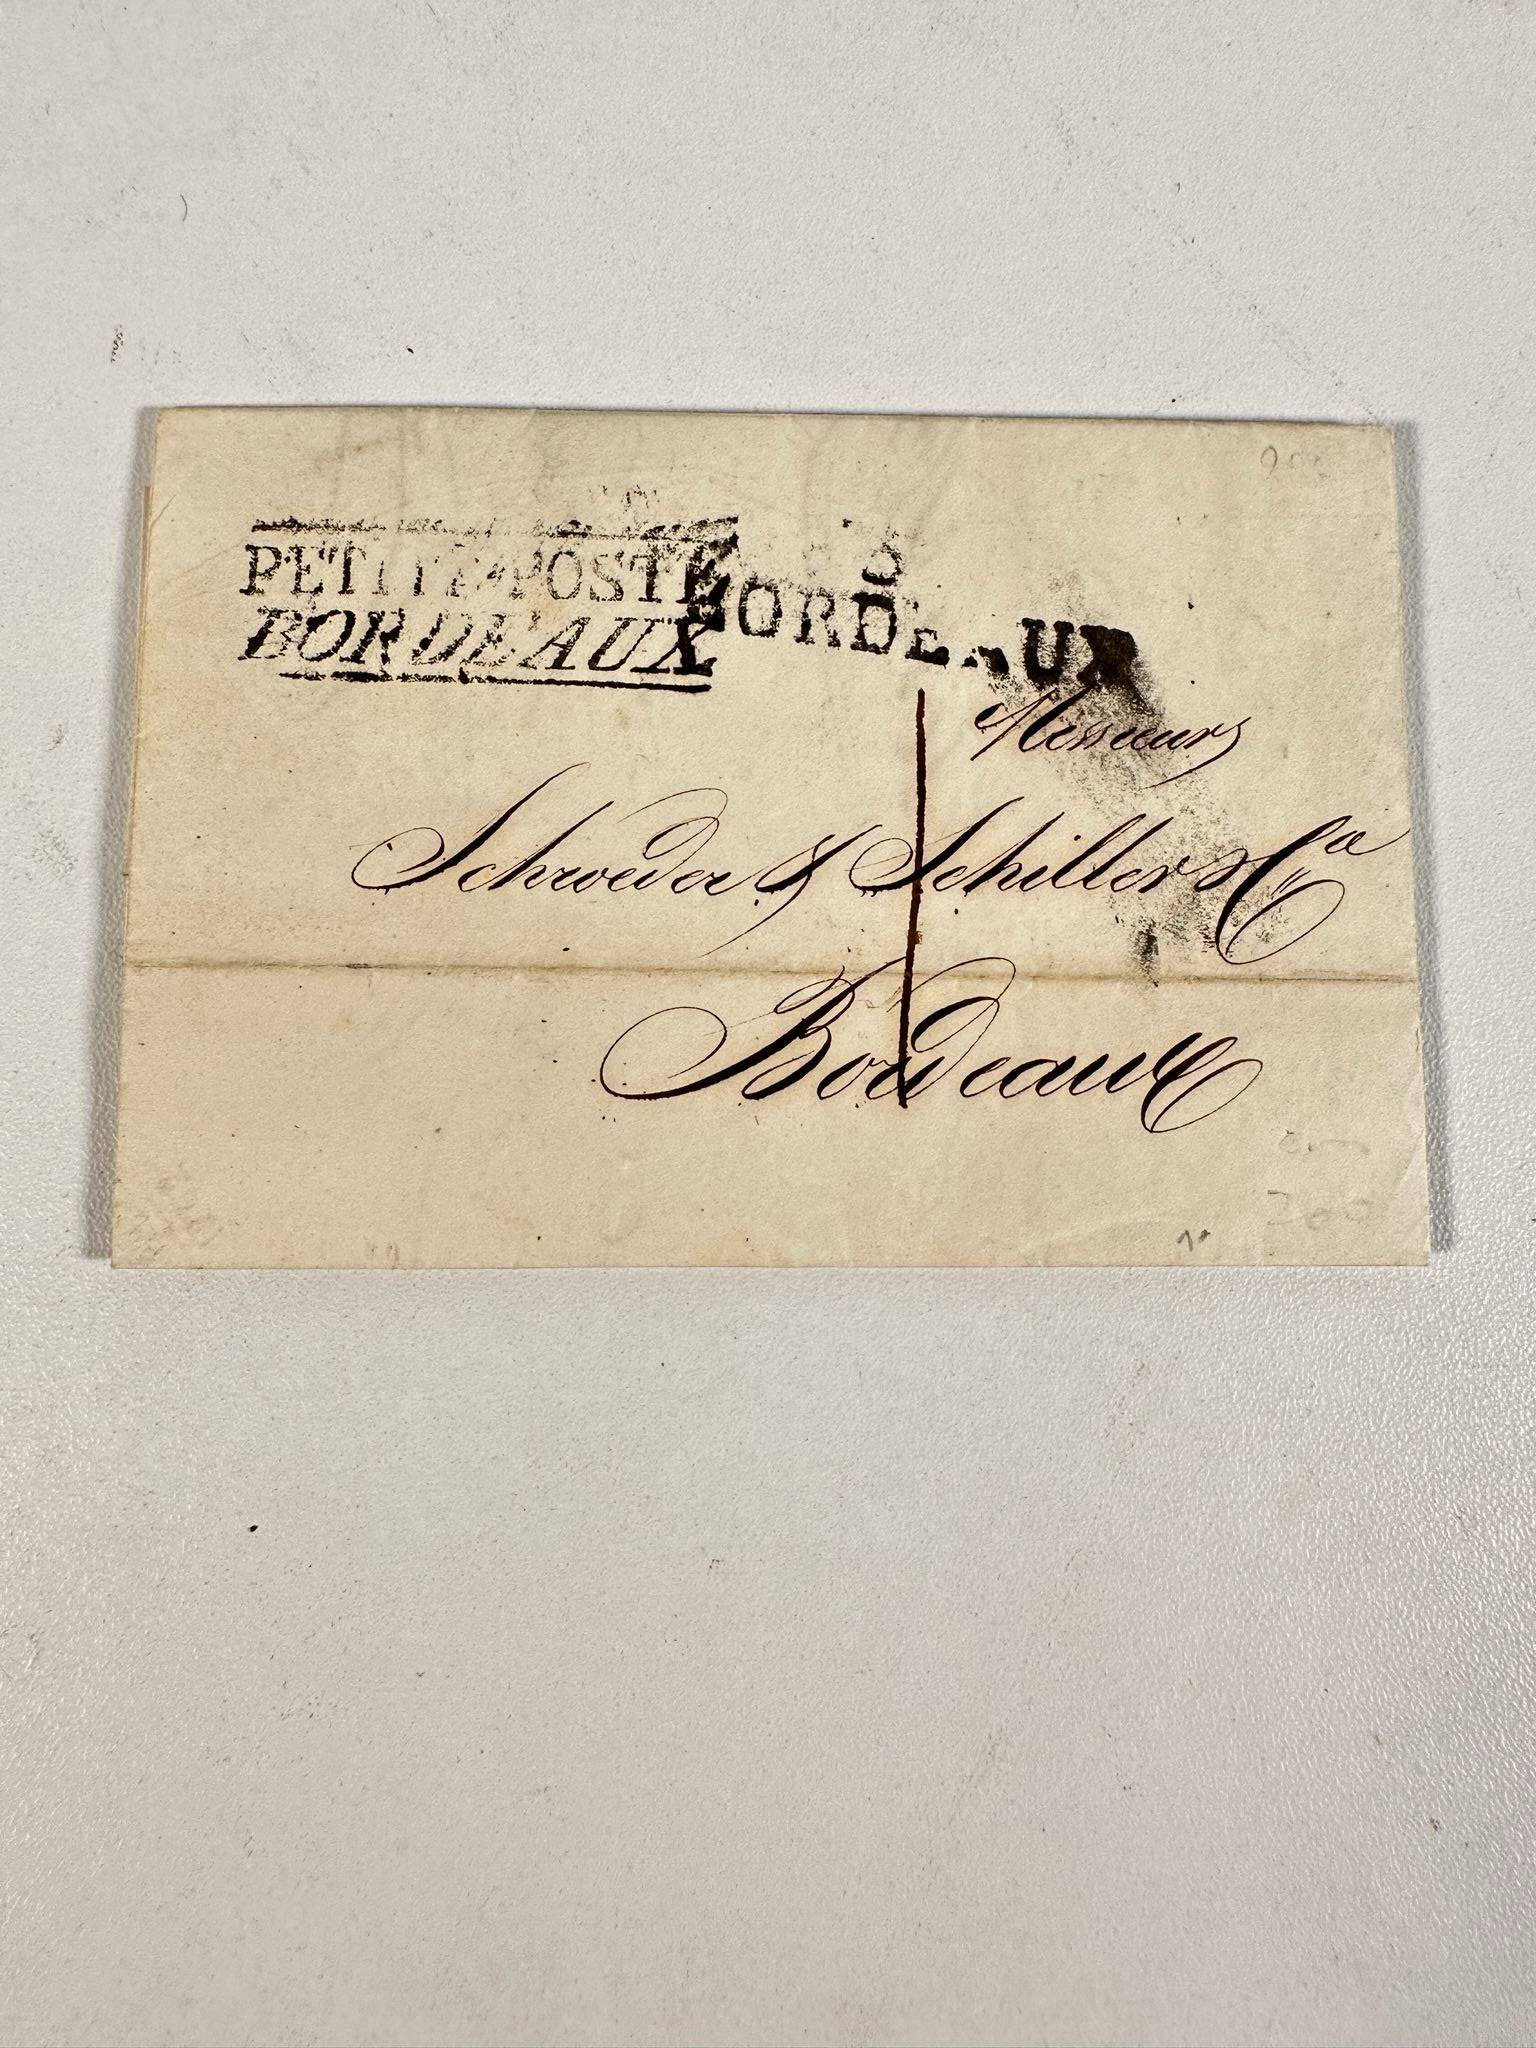 PETITE POSTE
BORDEAUX
BORDEAUX
Messieurs
Schroeder & Schiller & Ca
Bordeaux
200